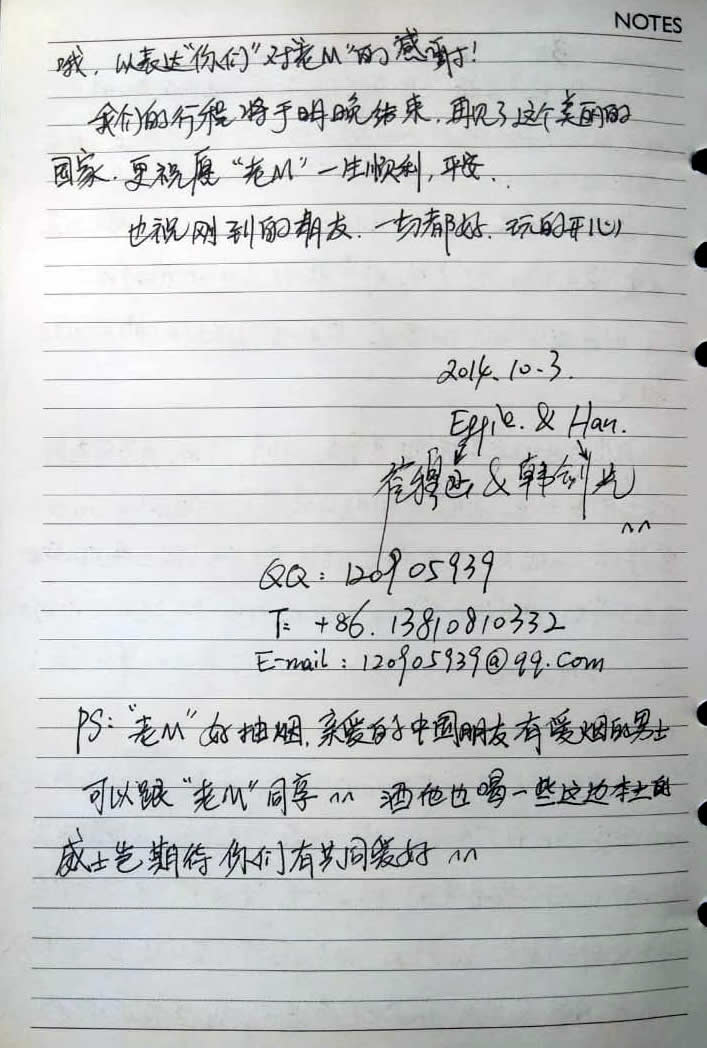 NOTES
哦，以表达"你们"对"老M"的感谢！
我们的行程将于明晚结束，再见了这个美丽的
国家．更祝愿"老M"一生顺利，平安．
也祝刚到的朋友．一切都好．玩的开心）
2014.10.3.
Effie. & Han.
& 韩剑光
^^
QQ：120905939
T: +86. 13810810332
E-mail：120905939@qq.com
PS："老M"好抽烟，亲爱的中国朋友有爱烟的男士
可以跟"老M"同享 ^^ 酒他也喝一些这边本土的
威士忌期待你们有共同爱好 ^^